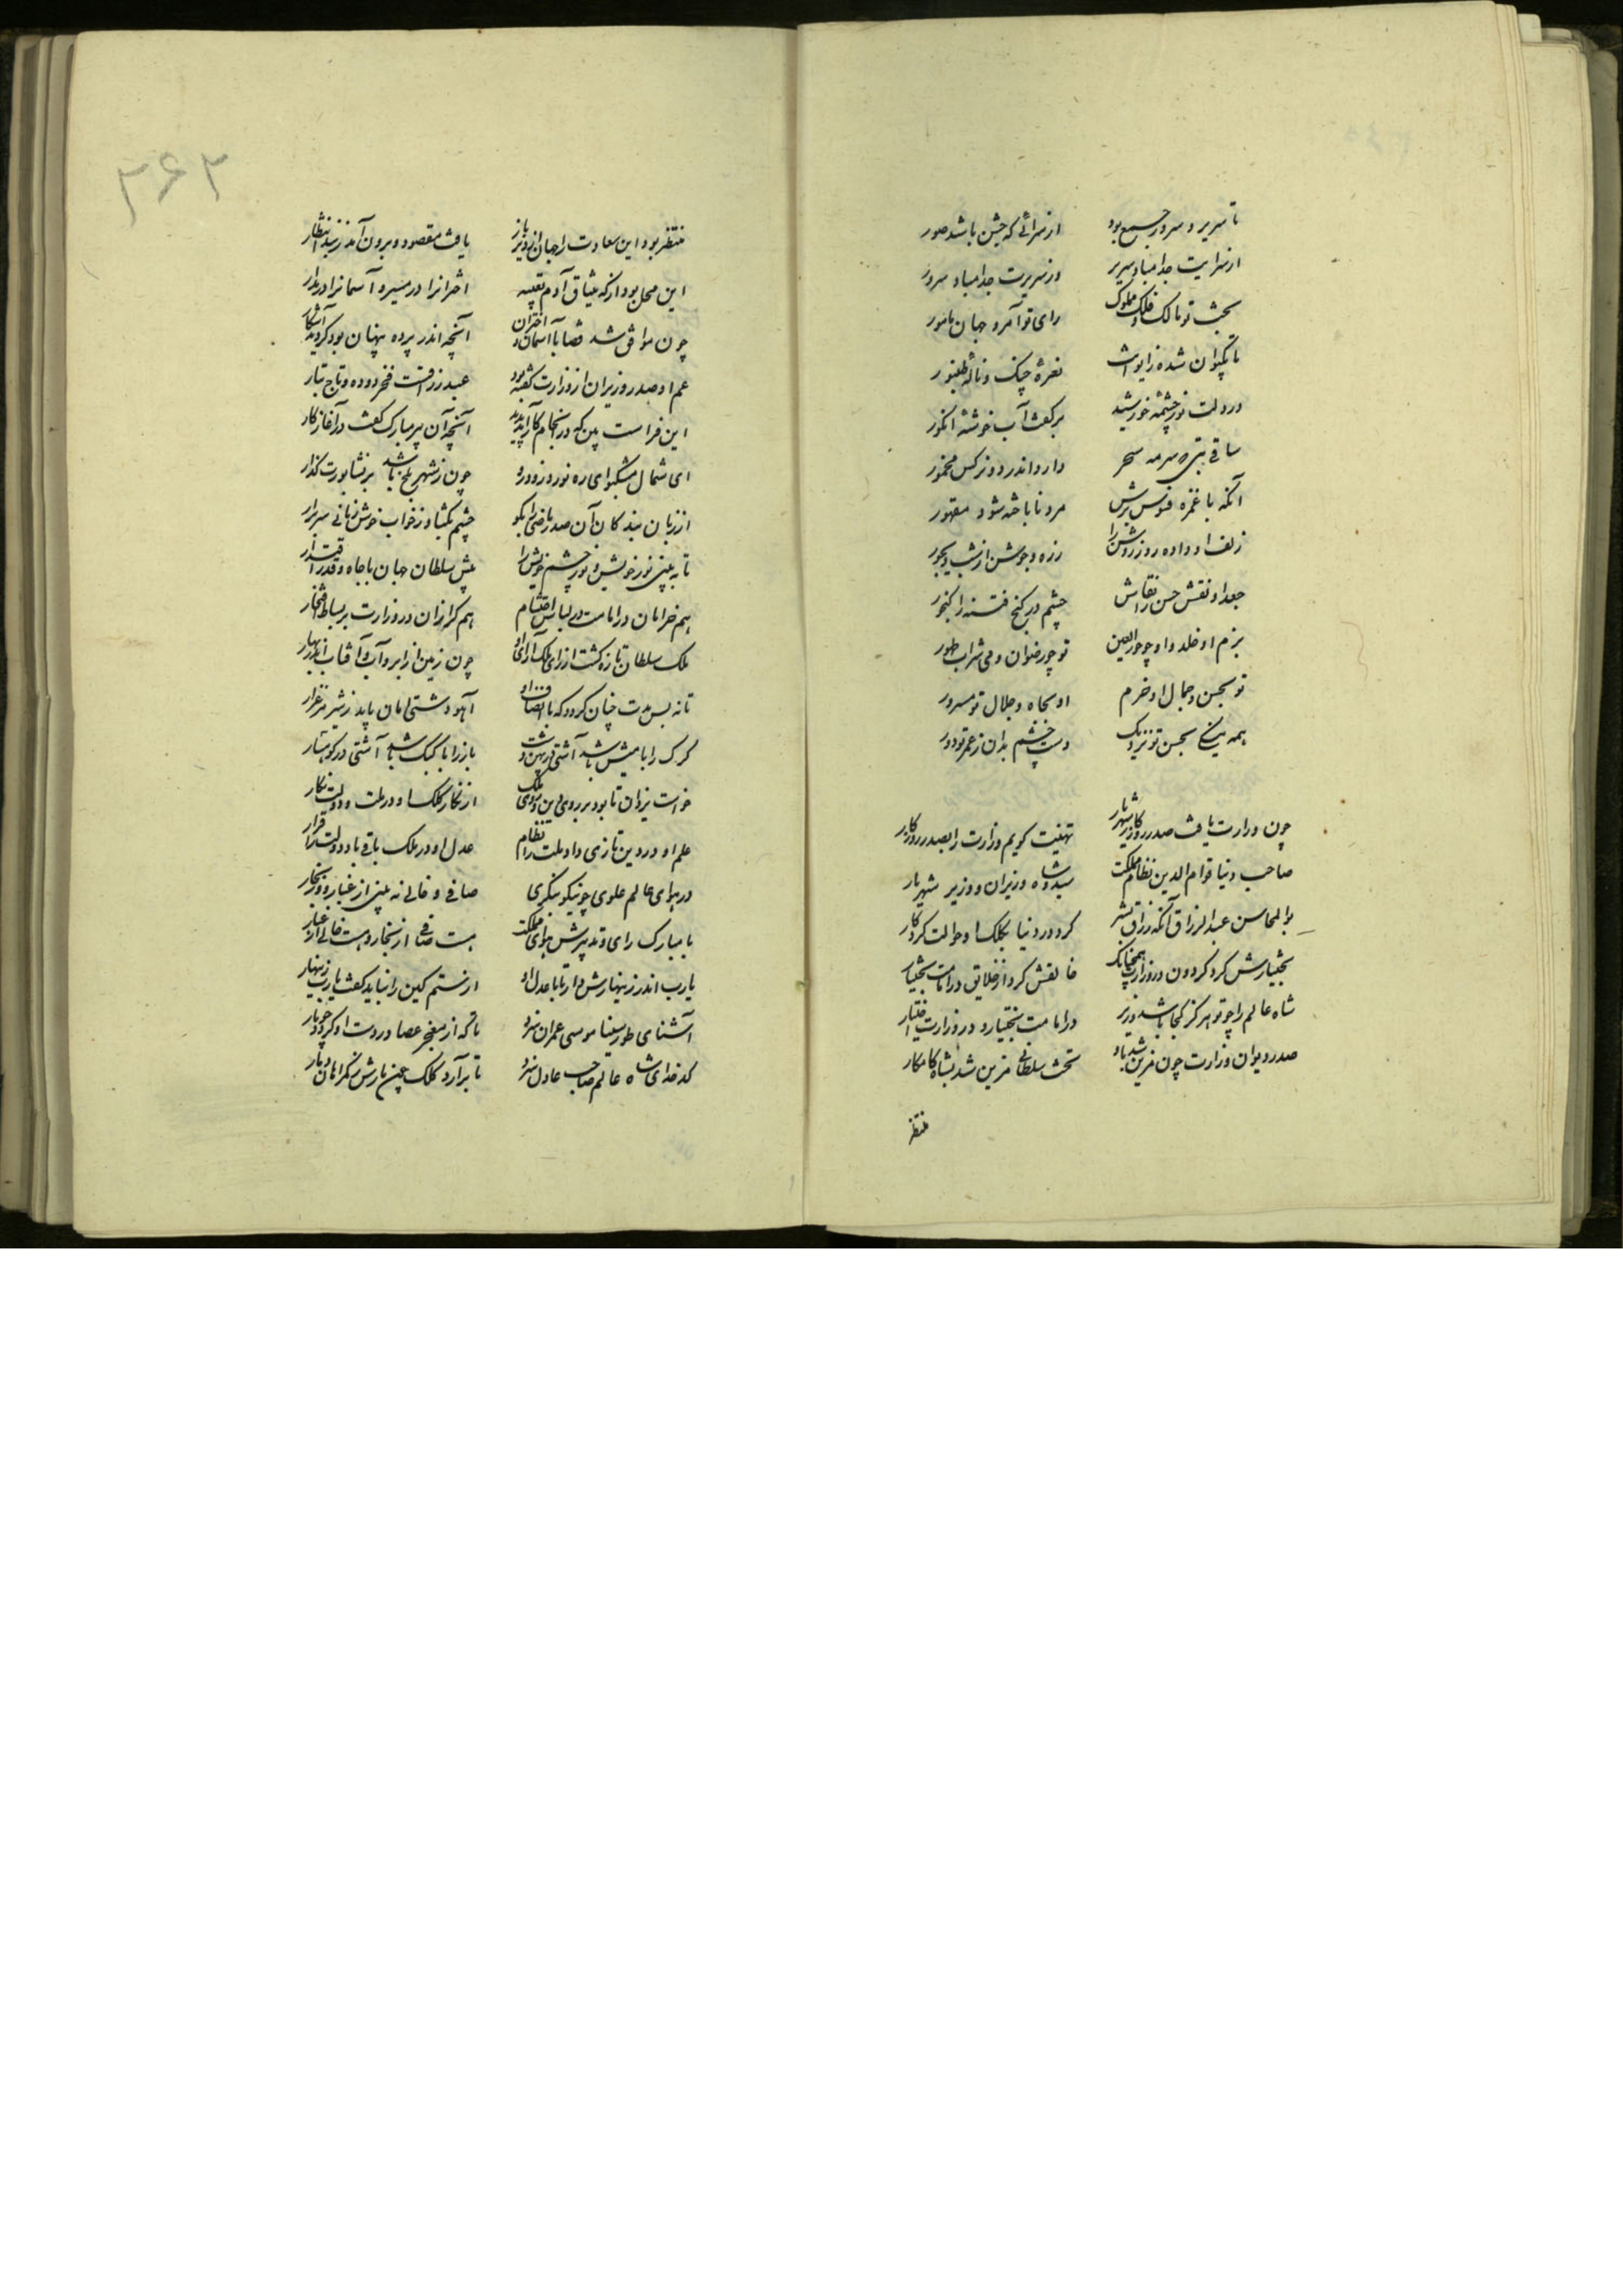 تا سریر و سرور جمع بود از سرائی که جشن باشد صور
از سرایت جدا مباد سریر وز سریرت جدا مباد سرور
بخت تو مالک فلک و ملوک رای تو آمر و جهان مامور
تا بکیوان شده ز ایوانت نعره چنک و ناله طنبور
در دلت نور چشمه خورشید بر کفت آب خوشه انکور
ساقی بتی سرمه سحر دارد اندر دو نرکس مخمور
آنکه با غمزه فسونس برش مرد ناباخته شود مقهور
زلف او داده روز روشن را زره و جوشن از شب دیجور
جعد او نقش حسن را نقاش چشم در کنج فتنه را کنجور
بزم او خلد و او چو حور العین تو چو رضوان و می شراب طهور
تو بحسن و جمال او خرم او بجاه و جلال تو مسرور
همه نیکی بحسن تو نزدیک دست و چشم بدان ز عمر تو دور
چون وزارت یافت صدر روزکار از شهریار تهنیت کویم وزارت را بصدر روزکار
صاحب دنیا قوام الدین نظام مملکت سید و شاه وزیران و وزیر شهریار
بو المحاسن عبد الرزاق آنکه رزاق بشر کرد در دنیا بکلک او حوالت کردکار
بختیارش کرد کردون در وزارت همچنانک خالقش کرد از خلایق در امامت بختیار
شاه عالم را چو تو هرکز کجا باشد وزیر در امامت بختیار و در وزارت اختیار
صدر دیوان وزارت چون مزین شد باو تخت سلطانی مزین شد بشاه کامکار
منتظر
۳۶۲
منتظر بود این سعادت را جهان از دیر باز یافت مقصود و برون آمد ز بند انتظار
این محل بود از که میثاق آدم تعبیه اختران را در مسیر و آسمان را در مدار
چون موافق شد قضا با آسمان و اختران آنچه اندر پرده پنهان بود کردید آشکار
عم او صدر وزیران از وزارت کفته بود عبد رزاقست فخر دوده و تاج تبار
این فراست بین که در انجام کار آمد پدید آنچه آن پیر مبارک کفت در آغاز کار
ای شمال مشکبوای ره نورد زود رو چون ز شهر بلخ باشد بر نشابورت کذار
از زبان بندکان آن صدر ماضی را بکو چشم بکشا و ز خواب خوش زمانی سر برار
تا به بینی نور خویش و نور چشم خویش را پیش سلطان جهان با جاه و قدر و اقتدار
هم خرامان در امامت در لباس احتشام هم کرازان در وزارت بر بساط افتخار
ملک سلطان تازه کشت از رای ملک آرای او چون زمین از ابر و آب و آفتاب اندر بهار
تا نه بس مدت چنان کردد که با انصاف او آهو دشتی امان یابد ز شیر مرغزار
کرک را با میش باشد آشتی در پهن دشت باز را با کبک باشد آشتی در کوهسار
خواست یزدان تا بود بر روی دین و سوی ملک از نکار کلک او در ملت و دولت نکار
علم او در دین تازی داد ملت را نظام عدل او در ملک باقی باد دولت را قرار
در هوای عالم علوی چو نیکو بنکری صافی و خالی نه بینی از غبار و از بخار
با مبارک رای و تدبیرش هوای مملکت هست صافی از بخار و هست خالی از غبار
یارب اندر زینهارش دار تا با عدل او از ستم کین را نباید کفت یارب زینهار
آشنای طور سینا موسی عمران سزد تا که از معجز عصا در دست او کردد چو مار
کدخدای شاه عالم صاحب عادل سزد تا بر آرد کلک چین بارش ز کمراهان دمار